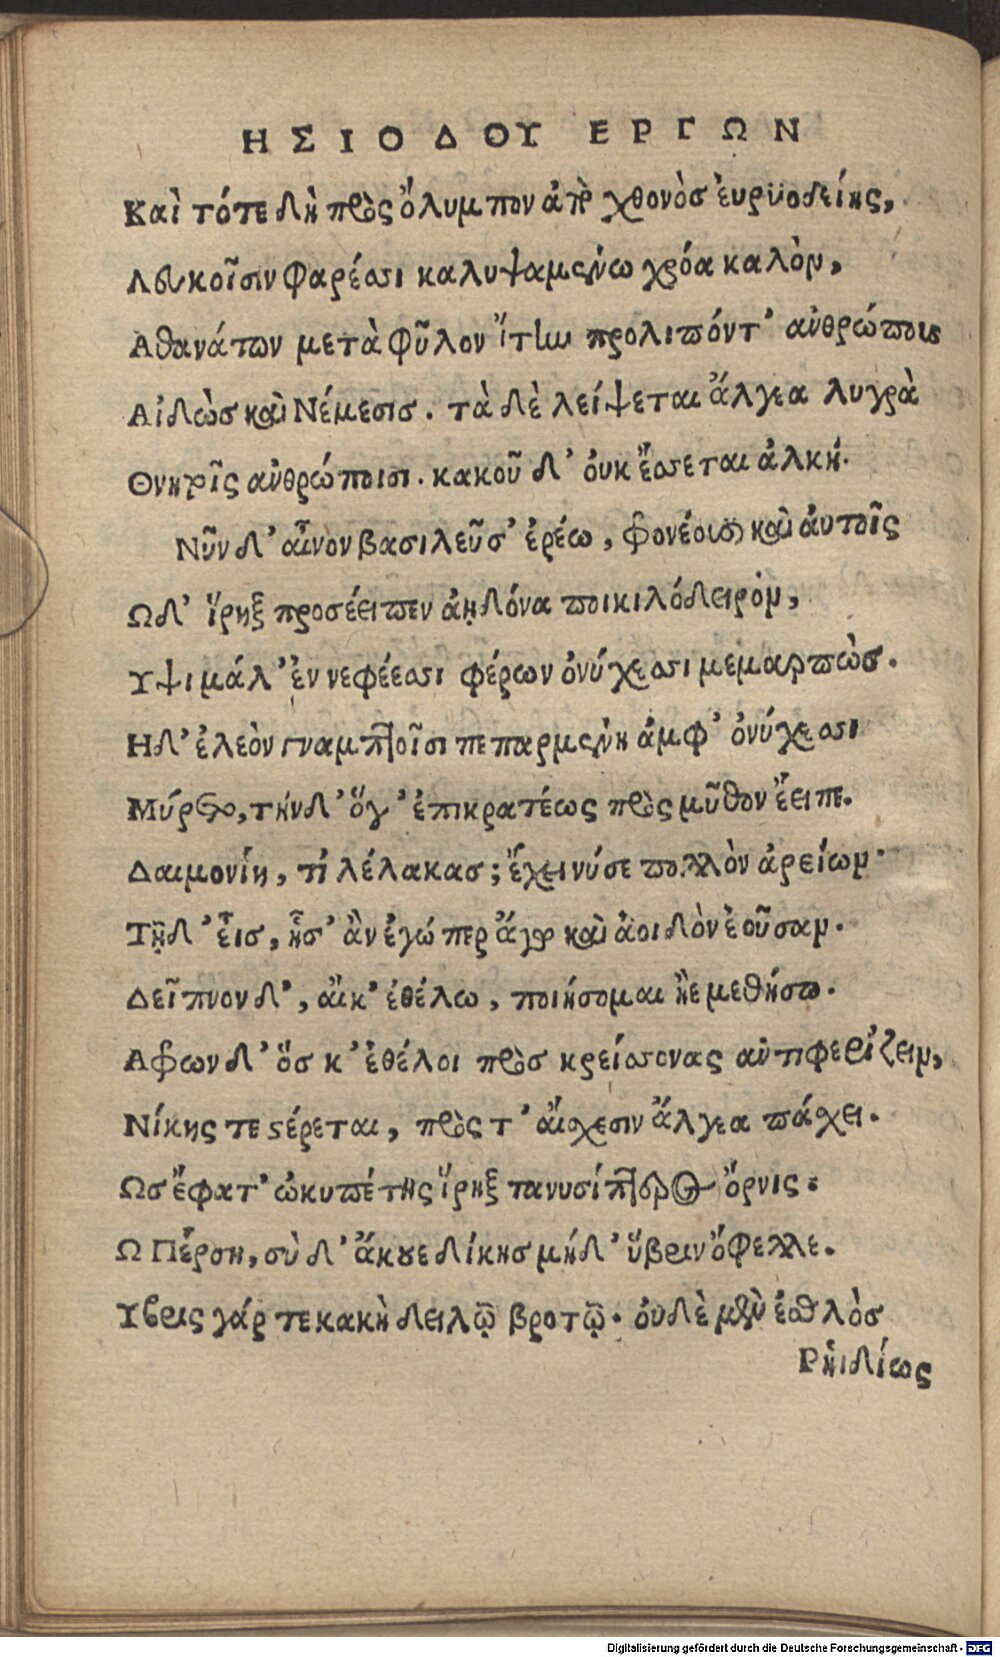 ΗΣΙΟΔΟΥ ΕΡΓΩΝ
Καὶ τότε δὴ πρὸς ὄλυμπον ἀπὸ χθονὸσ ἐυρυοδείης,
Λευκοῖσιν φαρέεσσι καλυψαμένω χρόα καλὸν,
Αθανάτων μετὰ φῦλον ἴτην προλιπόντ' ἀνθρώπους
Αἰδὼσ καὶ Νέμεσισ. τὰ δὲ λείψεται ἄλγεα λυγρὰ
Θνητοῖς ἀνθρώποισι. κακοῦ δ' ὀυκ ἔσσεται ἀλκή.
Νῦν δ' αἶνον βασιλεῦσ' ἐρέω, φρονέουσι καὶ ἀυτοῖς
Ωδ' ἴρηξ προσέειπεν ἀηδόνα ποικιλόδειρον,
Υψι μάλ' ἐν νεφέεσσι φέρων ὀνύχεσσι μεμαρπὼσ.
Ηδ' ἐλεὸν γναμπτοῖσι πεπαρμένη ἀμφ' ὀνύχεσσι
Μύρετο, τήνδ' ὅγ' ἐπικρατέως πρὸς μῦθον ἔειπε.
Δαιμονίη, τί λέλακασ; ἔχει νύ σε πολλὸν ἀρείων.
Τῇ δ' εἶισ, ᾗσ' ἂν ἐγώ περ ἄγω καὶ ἀοιδὸν ἐοῦσαν.
Δεῖπνον δ', ἄικ' ἐθέλω, ποιήσομαι ἠὲ μεθήσω.
Αφρων δ' ὅσ κ' ἐθέλοι πρὸσ κρείσσονας ἀντιφερίζειν,
Νίκης τε στέρεται, πρὸς τ' ἄισχεσιν ἄλγεα πάσχει.
Ωσ ἔφατ' ὠκυπέτης ἴρηξ τανυσίπτερος ὄρνις.
Ω Πέρση, σὺ δ' ἄκουε δίκησ μήδ' ὕβριν ὄφελλε.
Υβρις γάρ τε κακὴ δειλῷ βροτῷ. ὀυδὲ μὲν ἐσθλὸσ
Ρηιδίως
Digitalisierung gefördert durch die Deutsche Forschungsgemeinschaft - DFG